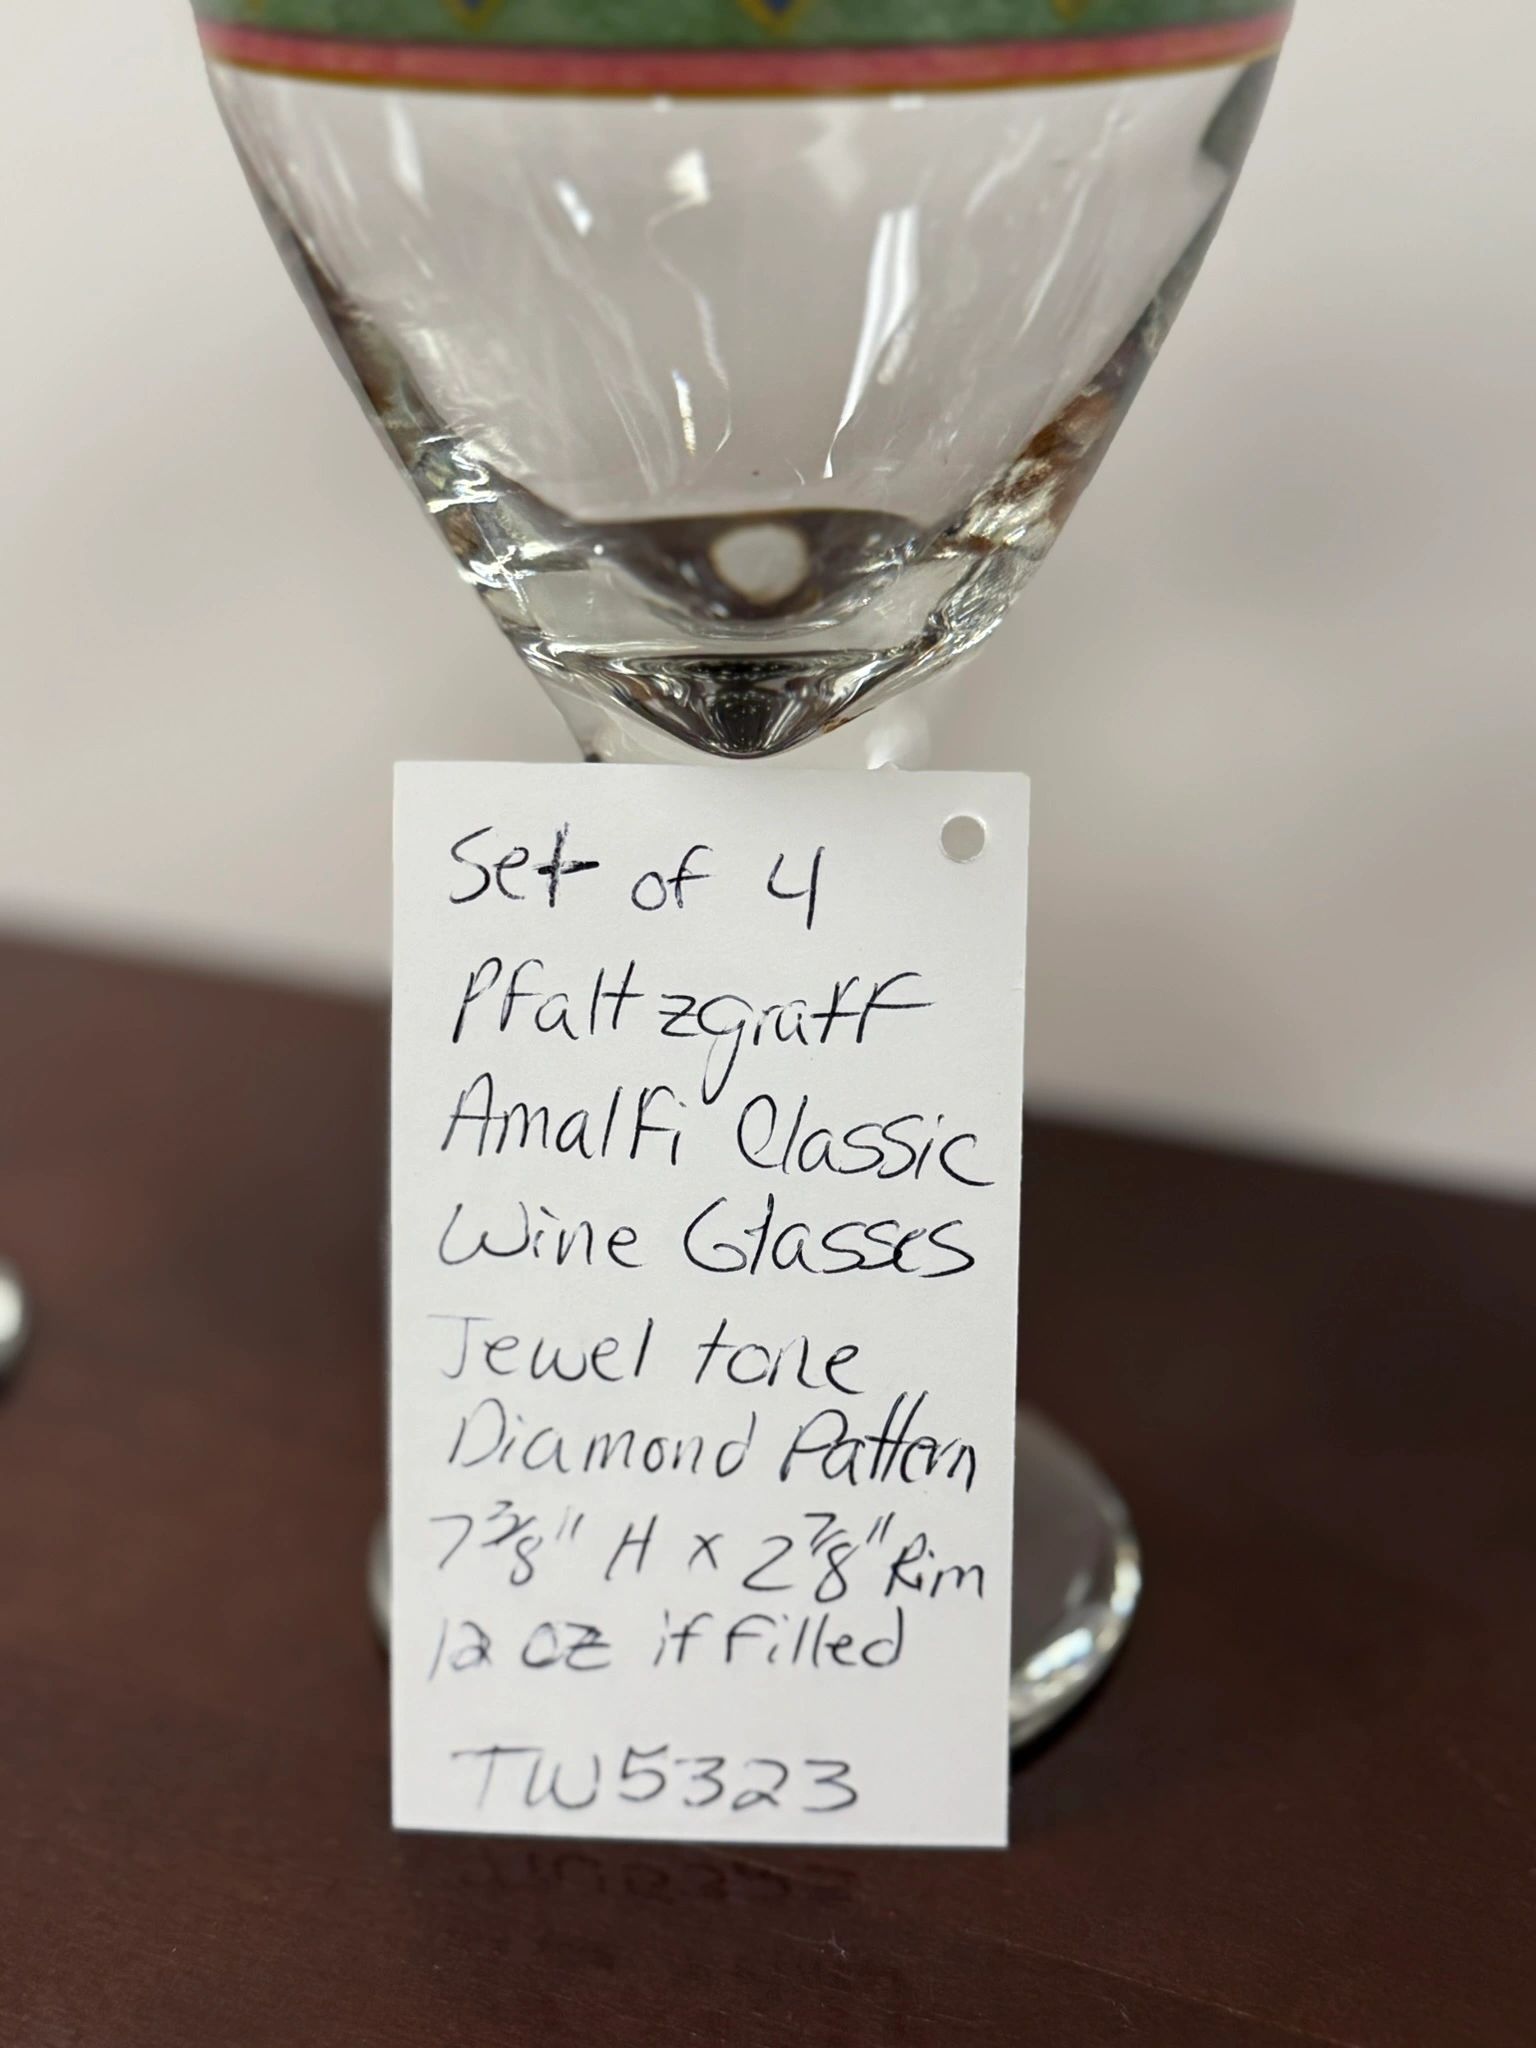 Set of 4
Pfaltzgraff
Amalfi Classic
Wine Glasses
Jewel tone
Diamond Pattern
7 3/8" H x 2 7/8" Rim
12 oz if filled
TW5323